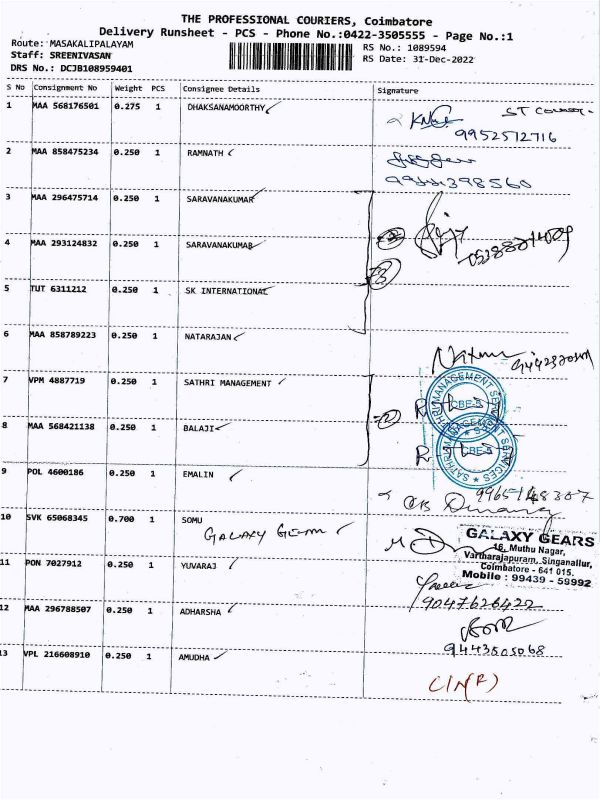 THE PROFESSIONAL COURIERS, Coimbatore
Delivery Runsheet - PCS - Phone No.:0422-3505555 - Page No.:1
Route: MASAKALIPALAYAM
Staff: SREENIVASAN
DRS No.: DCJB108959401
RS No.: 1089594
RS Date: 31-Dec-2022
S No Consignment No Weight PCS Consignee Details Signature
1 MAA 568176501 0.275 1 DHAKSANAMOORTHY ST Courier
9952512716
2 MAA 858475234 0.250 1 RAMNATH
3 MAA 296475714 0.250 1 SARAVANAKUMAR
4 MAA 293124832 0.250 1 SARAVANAKUMAR
5 TUT 6311212 0.250 1 SK INTERNATIONAL
6 MAA 858789223 0.250 1 NATARAJAN
7 VPM 4887719 0.250 1 SATHRI MANAGEMENT
SATHRI MANAGEMENT SERVICES
CBE-5
8 MAA 568421138 0.250 1 BALAJI
SATHRI MANAGEMENT SERVICES
CBE-5
9 POL 4600186 0.250 1 EMALIN
10 SVK 65068345 0.700 1 SOMU
GALAXY Gears
GALAXY GEARS
16, Muthu Nagar,
Vartharajapuram, Singanallur,
Coimbatore - 641 015.
Mobile : 99439 - 59992
11 PON 7027912 0.250 1 YUVARAJ
9047626422
12 MAA 296788507 0.250 1 ADHARSHA
9443505068
13 VPL 216608910 0.250 1 AMUDHA
CIN(R)